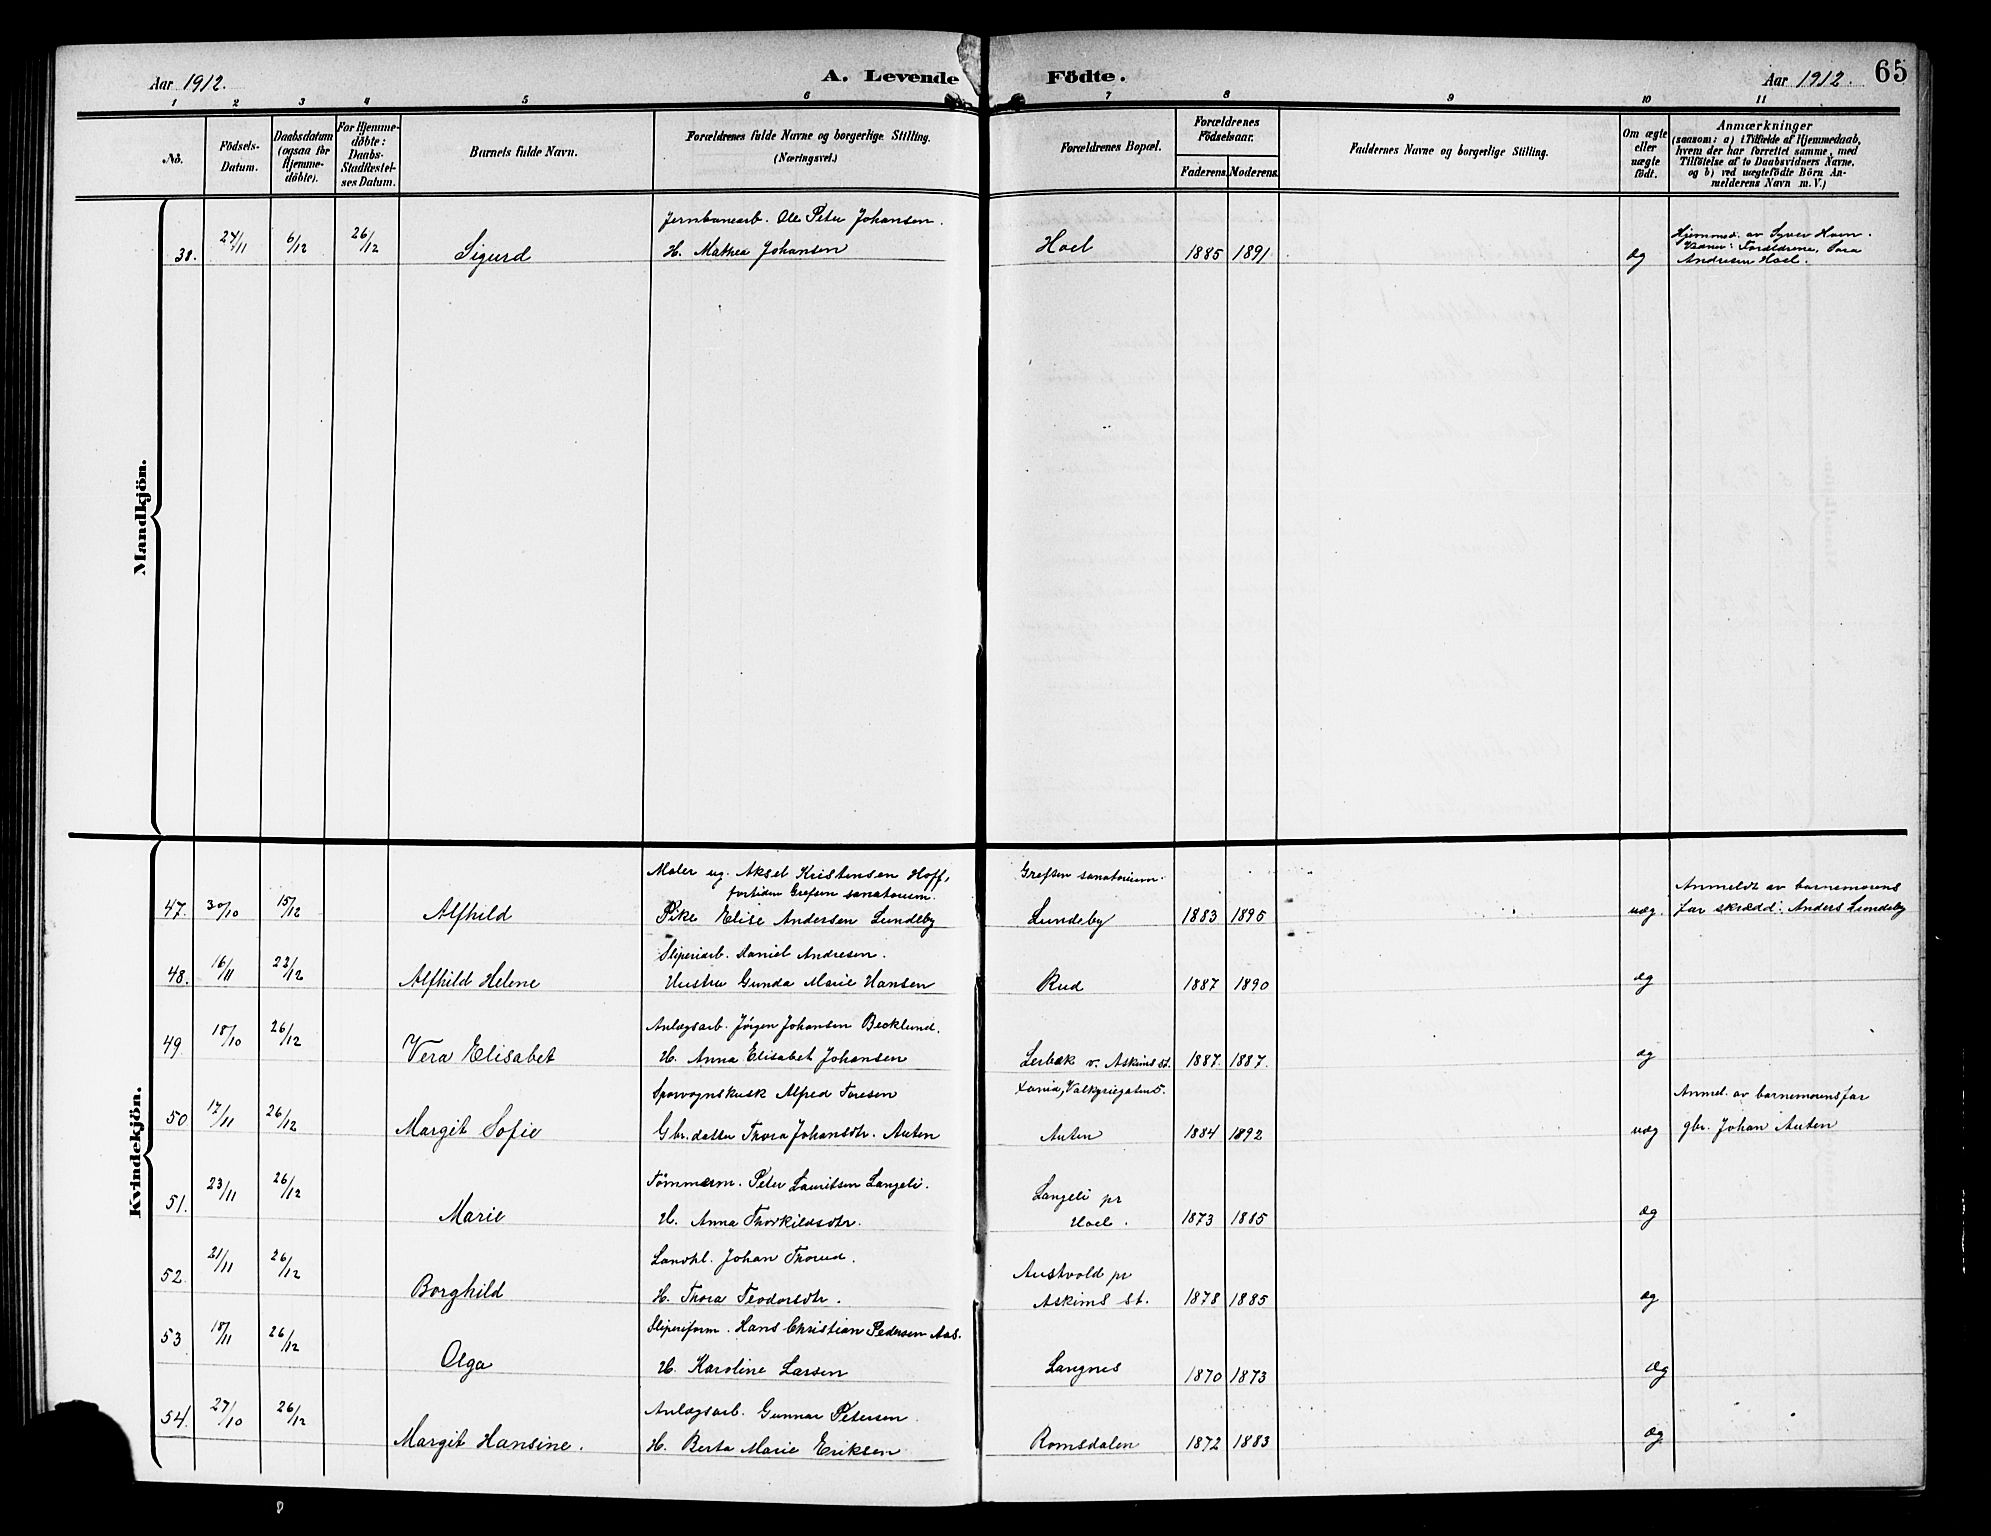 Aar 1912.
A. Levende Födte.
Aar 1912.
65
1 2 3 4 5 6 7 8 9 10 11
No.
Födsels-
Datum.
Daabsdatum
(ogsaa for
Hjemme-
döbte).
For Hjemme-
döbte:
Daabs-
Stadfæstel-
ses Datum.
Barnets fulde Navn.
Forældrenes fulde Navne og borgerlige Stilling.
(Næringsvei.)
Forældrenes Bopæl.
Forældrenes
Födselsaar.
Faderens. Moderens.
Faddernes Navne og borgerlige Stilling.
Om ægte
eller
uægte
födt.
Anmærkninger
(saasom: a) i Tilfælde af Hjemmedaab,
hvem der har forrettet samme, med
Tilföielse af to Daabsvidners Navne,
og b) ved uægtefödte Börn An-
melderens Navn m. V.)
Mandkjön.
Jernbanearb. Ole Peter Johansen.
38. 24/11 6/12 26/12 Sigurd H. Mathea Johansen Hoel 1885 1891 æg
Hjemmed. av Syver Hoen.
Vidner: Forældrene,
Andresen Hoel.
Kvindekjön.
Maler ug. Aksel Kristensen Hoff, Grefsen sanatorium.
fortiden Grefsen sanatorium.
47. 30/10 15/12 Alfhild Pike Elise Andersen Lundeby Lundeby 1883 1895 uæg.
Anmeldt av barnemorens
far skrædd. Anders Lundeby
Sliperiarb. Daniel Andresen.
48. 16/11 22/12 Alfhild Helene Hustru Gunda Marie Hansen Rud 1887 1890 æg
Anlægsarb. Jörgen Johansen Becklund.
49 18/10 26/12 Vera Elisabet H. Anna Elisabet Johansen Lerbæk v. Askims st. 1887. 1887. æg
Sporvognskusk Alfred Toresen Xania, Valkyriegaten 5.
50 17/11 26/12 Margit Sofie Gbr.datter Thora Johansdtr. Auten Auten 1884 1892 uæg
Anmel. av barnemorens far
gbr. Johan Auten
Tömmerm. Peter Lauritsen Langeli.
51. 23/11 26/12 Marie H. Anna Thorkildsdtr. Langeli pr
Hoel. 1873 1885 æg
Landhl. Johan Thorud.
52. 21/11 26/12 Borghild H. Thora Teodorsdtr. Austvold pr
Askims st. 1878 1885 æg
Sliperiform. Hans Christian Pedersen Aas.
53 18/11 26/12 Olga H. Karoline Larsen Langnes 1870 1873 æg
Anlægsarb. Gunnar Petersen.
54. 27/10 26/12 Margit Hansine. H. Berta Marie Eriksen Romsdalen 1872 1883 æg